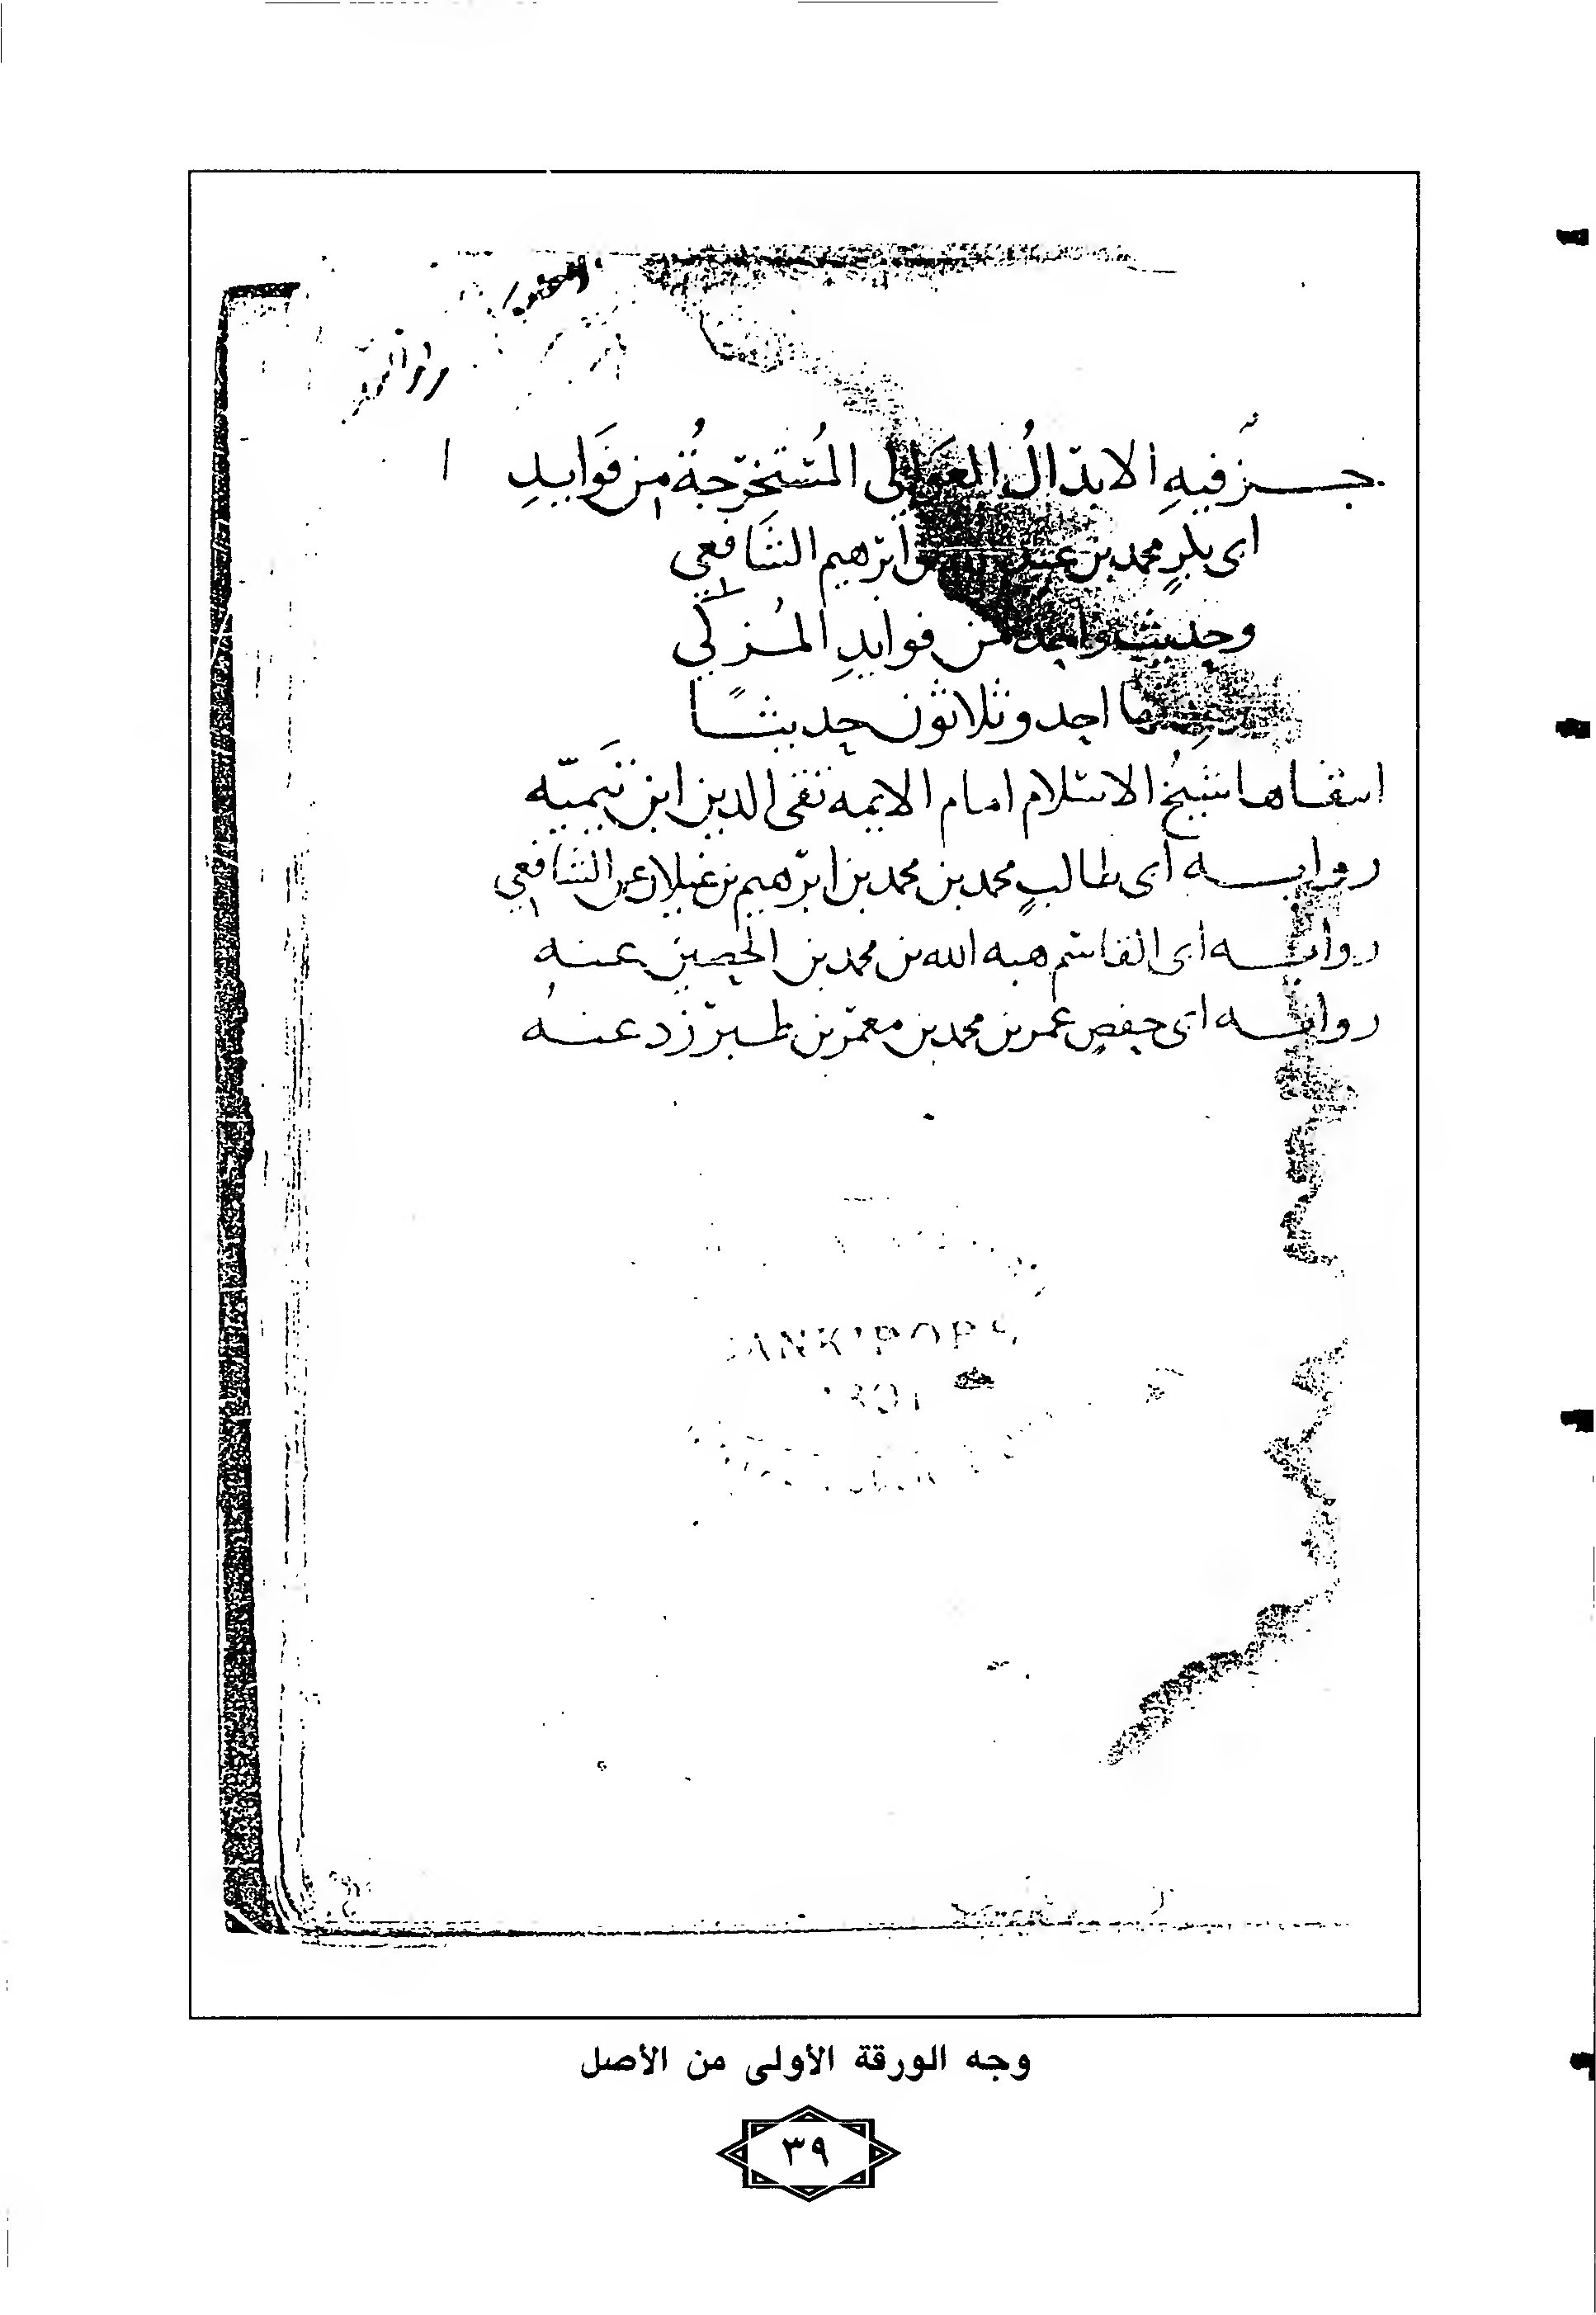 جزٌ فيهِ الابدَالُ العَوالي المُستخرَجةُ من فَوَايدِ
ابى بكرٍ محمد بن عبد ابرٰهيم الشَافعي
وحديث واحد من فوايدِ المُزكي
احد وثلاثون حديثًا
انتقاها شيخُ الاسلام امام الايمه تقى الدين ابن تَيميّه
روايـه ابى طالبٍ محمد بن محمد بن ابرٰهيم بن غيلان عن الشافعي
روايـه ابى القاسم هبه الله بن محمد بن الحصين عنه
روايـه ابى حفصٍ عمر بن محمد بن معمّر بن طبرزد عنهُ
وجه الورقة الأولى من الأصل
٣٩